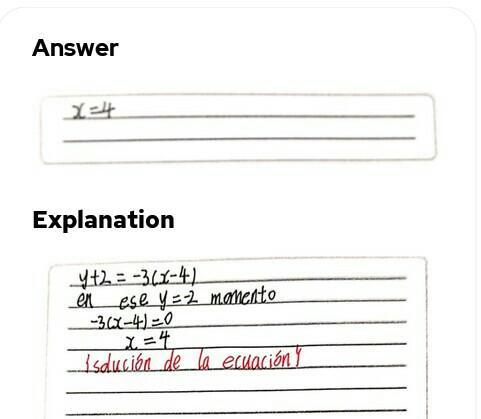 Answer
x=4
Explanation
y+2 = -3(x-4)
en ese y=-2 momento
-3(x-4)=0
x=4
solución de la ecuación